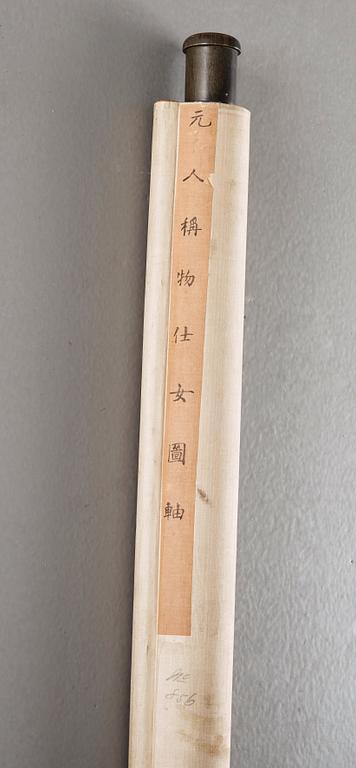 元人稱物仕女圖軸